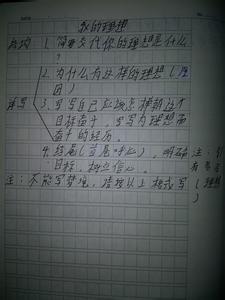 我的理想
1. 简要交代你的理想是什么
?
2. 为什么有这样的理想(原
因)
3. 写写自己应该怎样朝这个
目标奋斗,写写为理想而
奋斗的经历。
4. 结尾(首尾呼应),明确 注:
目标,树立信心。
注:不能写梦境,请按以上格式写(理想
)